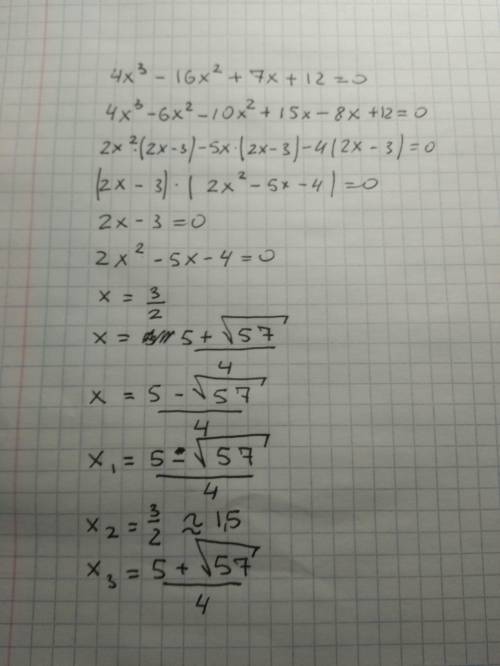 4x³ - 16x² + 7x + 12 = 0
4x³ - 6x² - 10x² + 15x - 8x + 12 = 0
2x²·(2x-3) - 5x·(2x-3) - 4(2x-3) = 0
(2x-3)·(2x²-5x-4) = 0
2x - 3 = 0
2x² - 5x - 4 = 0
x = 3/2
x = 5 + √57 / 4
x = 5 - √57 / 4
x₁ = 5 - √57 / 4
x₂ = 3/2 ≈ 1,5
x₃ = 5 + √57 / 4